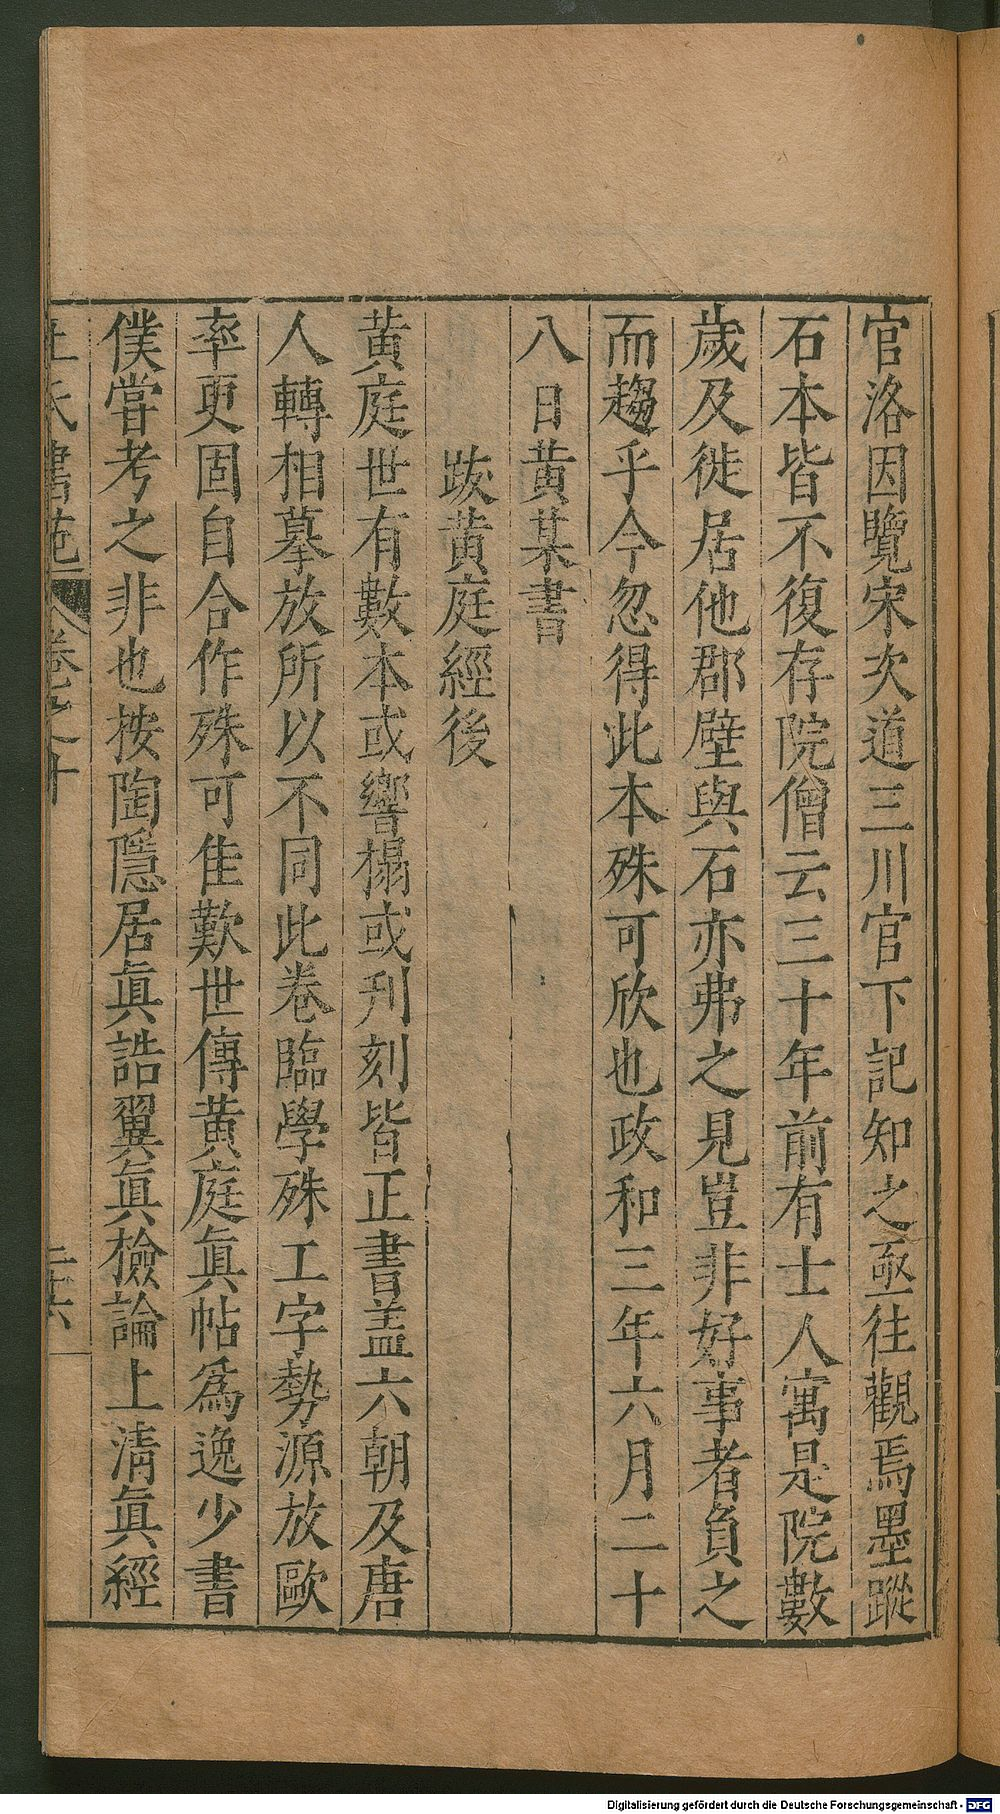 官洛因覽宋次道三川官下記知之亟往觀焉墨蹤
石本皆不復存院僧云三十年前有士人寓是院數
歲及徙居他郡壁與石亦弗之見豈非好事者負之
而趨乎今忽得此本殊可欣也政和三年六月二十
八日黃某書
跋黃庭經後
黃庭世有數本或響搨或刋刻皆正書盖六朝及唐
人轉相摹放所以不同此卷臨學殊工字勢源放歐
率更固自合作殊可佳歎世傳黃庭眞帖爲逸少書
僕嘗考之非也按陶隱居眞誥翼眞檢論上清眞經
王氏書苑 卷之十
二十六
Digitalisierung gefördert durch die Deutsche Forschungsgemeinschaft - DFG